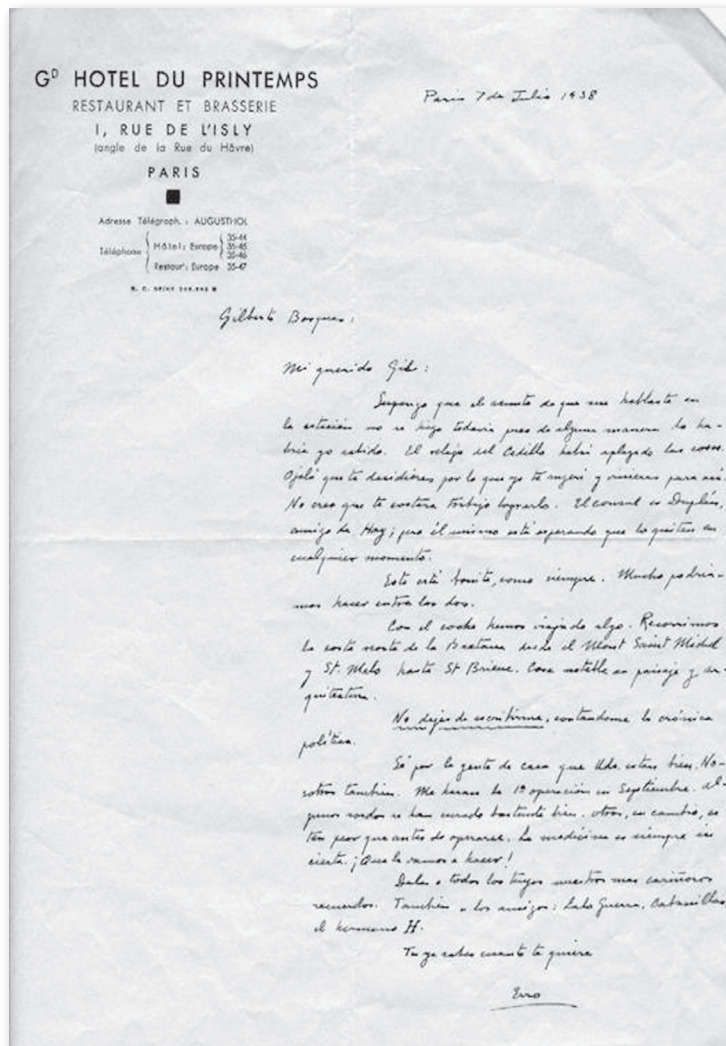 GD HOTEL DU PRINTEMPS
RESTAURANT ET BRASSERIE
1, RUE DE L'ISLY
(angle de la Rue du Hâvre)
PARIS
Adresse Télégraph. : AUGUSTHOL
Téléphone
Hôtel : Europe
35-44
35-45
35-46
Restaur' : Europe 35-47
Paris 7 de Julio 1938
Gilberto Bosques :
Mi querido Gil :
Supongo que el de que me hablaste en
la estación no se hizo todavía pues de alguna manera lo ha-
bría yo sabido. El relajo del Cedillo habrá aplazado las cosas.
Ojalá que te decidieras por lo que yo te sugerí y vinieras para acá.
No creo que te costara trabajo lograrlo. El consul es Duplán,
amigo de Hay; pero él mismo está esperando que lo quiten en
cualquier momento.
Esto está bonito, como siempre. Mucho podría-
mos hacer entre los dos.
Con el coche hemos viajado algo. Recorrimos
la costa norte de la Bretaña desde el Mont Saint Michel
y St. Malo hasta St Brieuc. Cosa notable en paisaje y ar-
quitectura.
No dejes de escribirme, contandome la crónica
política.
Sé por la gente de casa que Uds. estan bien. No-
sotros tambien. Me haran la 1ª operación en Septiembre. Al-
gunos sordos se han curado bastante bien. Otros, en cambio, es-
tan peor que antes de operarse. La medicina es siempre in-
cierta. ¡Que le vamos a hacer!
Dales a todos los tuyos nuestros mas cariñosos
recuerdos. Tambien a los amigos : Lalo Guerra, Cabanillas,
el hermano H.
Tu ya sabes cuanto te quiere
Erro